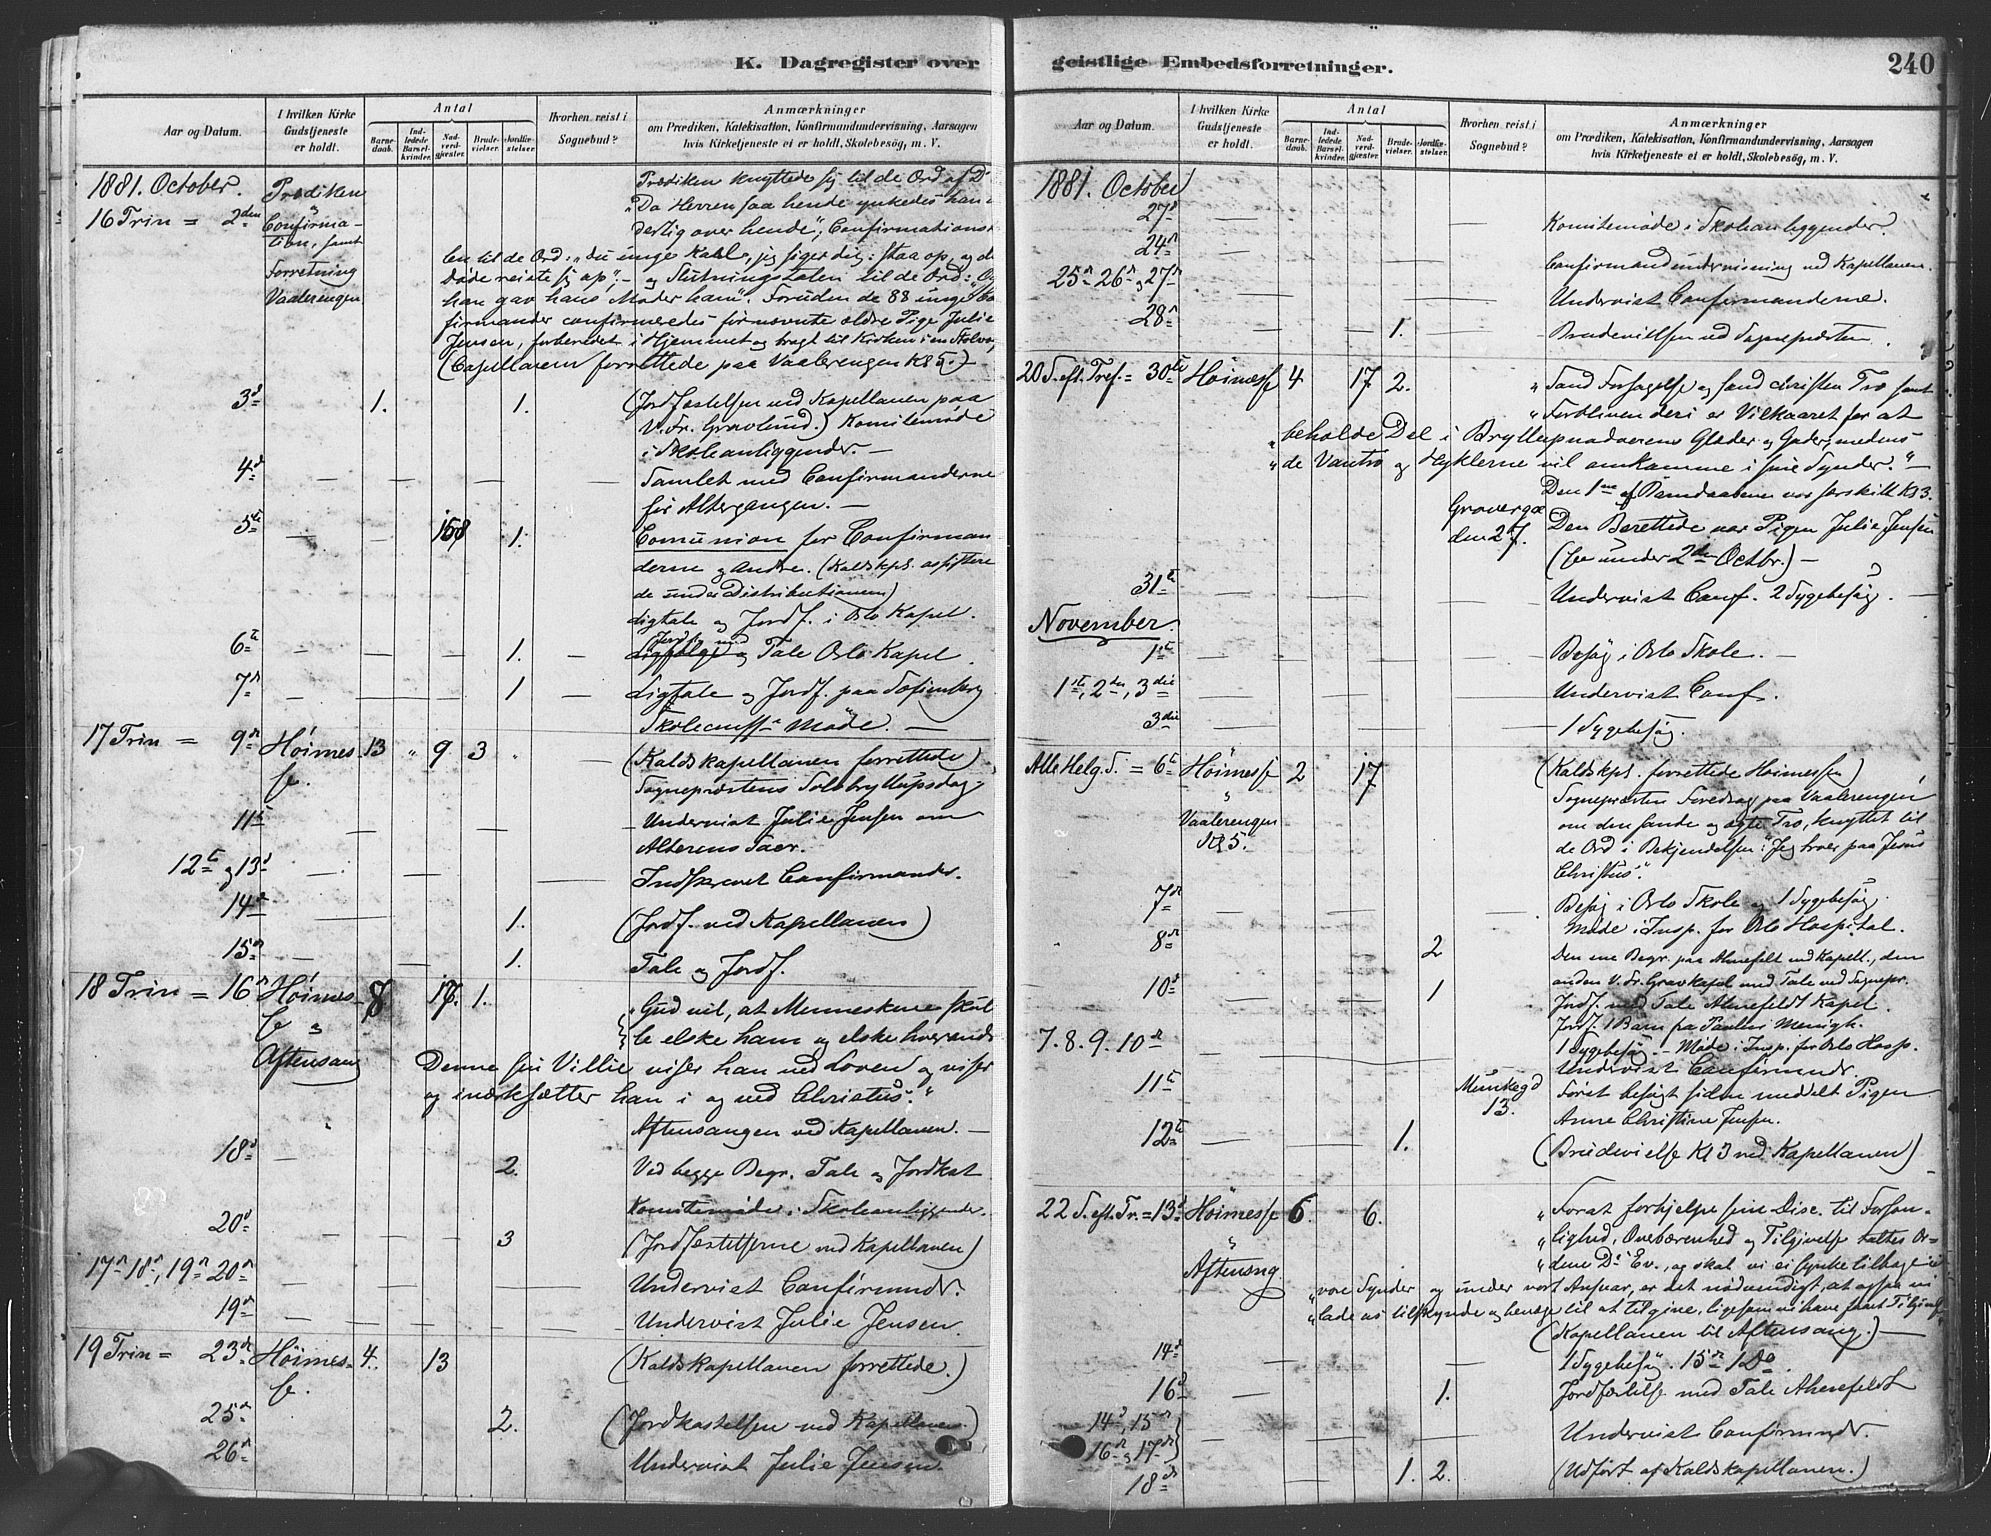 K. Dagregister over
Aar og Datum.
I hvilken Kirke Gudstjeneste er holdt.
Antal
Barne-daab.
Ind-ledede Barsel-kvinder.
Nad-verd-gjæster.
Brude-vielser.
Jordfæ-stelser.
Hvorhen reist i Sognebud?
Anmærkninger
om Prædiken, Katekisation, Konfirmandundervisning, Aarsagen
hvis Kirketjeneste ei er holdt, Skolebesøg, m. V.
1881. October.
16 Trin = 2den Prædiken Confirma-tion, samt Forretning Vaalerengen
Prædiken knyttede sig til de Ord af
"Da Herren saa hende ynkedes han
derlig over hende"; Confirmations
len til de Ord: "du unge Karl, jeg siger dig: staa op, og
døde reiste sig op", og Slutningstalen til de Ord:
han gav hans Moder ham". Foruden de 88 unge
firmander confirmeredes fornævnte ældre Pige Julie
Jensen, forberedet i Hjemmet og bragt til Kirken i en
(Capellanen forrettede paa Vaalerengen Kl 5.)
3d 1. 1. (Jordfæstelsen ved Kapellanen paa
V. Fr. Gravlund.) Komitemøde
i Skoleanliggender.
4d Samlet med Confirmanderne
før Altergangen.
5te 158 1. Comunion for Confirman-
derne og Andre. (Kaldskpl. assistere
de under Distributionen)
Ligtale og Jordf. i Oslo Kapel.
6te 1. Tale Oslo Kapel.
7n 1 Ligtale og Jordf. paa Sofienberg
Møde.
17 Trin = 9n Høimes-se. 13 " 9 3 (Kaldskapellanen forrettede)
Sognepræstens Sølvbryllupsdag.
11te Undervist Julie Jensen om
Alterens Sacr.
12te og 13d Indskrevet Confirmander.
14d 1. (Jordf. ved Kapellanen)
15n 1. Tale og Jordf.
18 Trin = 16n Høimes-se og Aftensang 8 17. 1. "Gud vil, at Menneskene skul
le elske ham og elske hverandre
Denne sin Villie viser han ved Loven og viser
og iværksætter han i og ved Christus."
Aftensangen ved Kapellanen.
18d 2. Ved begge Begr. Tale og Jordkast
Komitemøde i Skoleanliggender.
20d 3 (Jordfæstelserne ved Kapellanen)
17n 18n, 19n 20n Undervist Confirmndr.
19n Undervist Julie Jensen.
19 Trin = 23de Høimes-se. 4. 13 (Kaldskapellanen forrettede.)
25n 2. (Jordkastelsen ved Kapellanen)
26n Undervist Julie Jensen.
geistlige Embedsforretninger.
240
Aar og Datum.
I hvilken Kirke Gudstjeneste er holdt.
Antal
Barne-daab.
Ind-ledede Barsel-kvinder.
Nad-verd-gjæster.
Brude-vielser.
Jordfæ-stelser.
Hvorhen reist i Sognebud?
Anmærkninger
om Prædiken, Katekisation, Konfirmandundervisning, Aarsagen
hvis Kirketjeneste ei er holdt, Skolebesøg, m. V.
1881. October
27d Komitemøde i Skoleanliggender.
24n Confirmandundervisning ved Kapellanen.
25n 26n og 27n Undervist Confirmanderne.
28n 1. Brudevielsen ved Sognepræsten
20 S. eft. Tref. = 30te Høimesse 4 17 2. "Sand Forsagelse og sand christen Tro samt
"Forbliven deri er Vilkaaret for at
"beholde Del i Bryllupsnadverens Glæder og Goder, medens
"de Vantro og Hyklerne vil omkomme i sine Synder."
Den 1ne af Barnedaabene var særskilt Kl 3.
den 27. Den Berettede var Pigen Julie Jensen
(se under 2den Octbr.)
31te Undervist Conf. 2 Sygebesøg.
November.
1te Besøg i Oslo Skole.
1te, 2den, 3die Undervist Conf.
3die 1 Sygebesøg.
Alle Helg. S. = 6te Høimesse og Vaalerengen Kl 5. 2 17 (Kaldskpl. forrettede Høimessen)
Sognepræsten Foredrag paa Vaalerengen
om den sande og ægte Tro, knyttet til
de Ord i Bekjendelsen: "Jeg troer paa Jesus
Christus".
7de Besøg i Oslo Skole og 1 Sygebesøg.
Møde i Insp. for Oslo Hospital.
8n 2 Den ene Begr. paa Ahnefelt ved Kapell., den
anden V. Fr. Gravkapel med Tale ved Sognepr.
10d 1 Jordf. med Tale Ahnefeldt Kapel.
Jordf. 1 Barn fra Paulus Menigh.
1 Sygebesøg. Møde i Insp. for Oslo Hosp.
7. 8. 9. 10n Undervist Confirmndr.
11te Munkegd 13. Først besøgt siden meddelt Pigen
Anne Christine Jensen.
12te 1. (Brudevielse Kl 3 ved Kapellanen)
22 S. eft. Tr. = 13d Høimesse og Aftensng. 6. 6. "For at forhjelpe sine Disc. til Forson-
"lighed, Overbærenhed og Tilgivelse taltes Or-
"dene D. Ev., og skal vi ei synke tilbage i
"vore Synder og under vort Ansvar, er det nødvendigt, at ogsaa vi
"lade os tilskynde og bevæge til at tilgive, ligesom vi have faaet Tilgivelse
(Kapellanen til Aftensang.)
14d 1 Sygebesøg. 15n 1 Do.
16d 1. Jordfæstelse med Tale Ahnefeldt
14d, 15n 16n og 17n Undervist Confirmndr.
18de 1. 2. (Udført af Kaldskapellanen.)